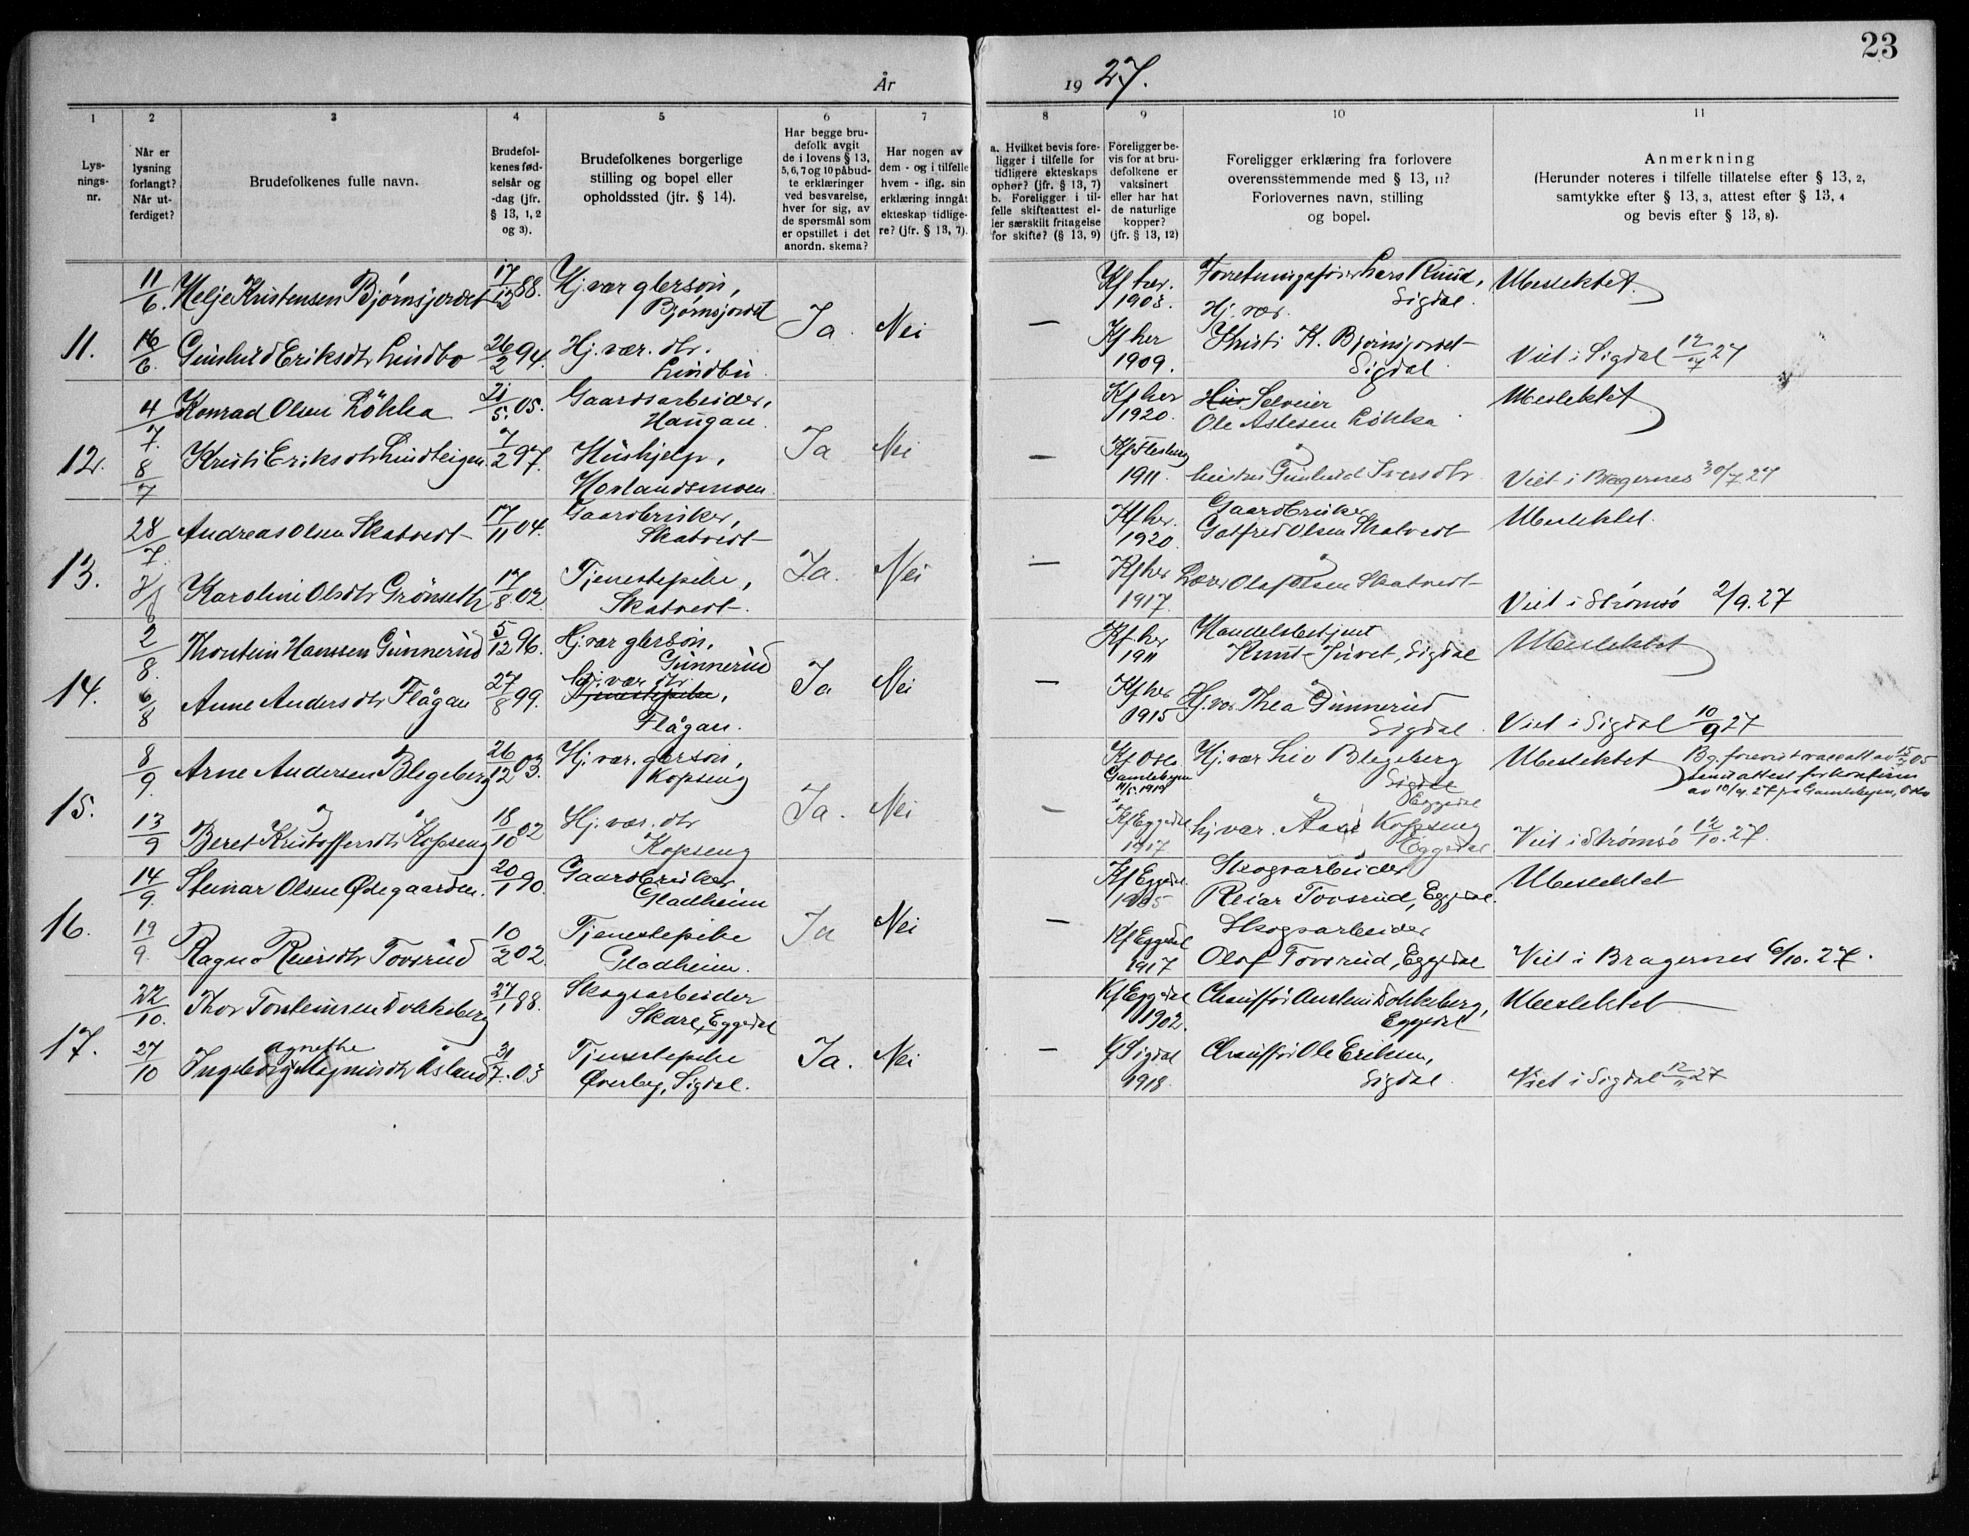 23
År 1927.
1 2 3 4 5 6 7 8 9 10 11
Lys-
nings-
nr.
Når er
lysning
forlangt?
Når ut-
ferdiget?
Brudefolkenes fulle navn.
Brudefol-
kenes fød-
selsår og
-dag (jfr.
§ 13, 1, 2
og 3).
Brudefolkenes borgerlige
stilling og bopel eller
opholdssted (jfr. § 14).
Har begge bru-
defolk avgit
de i lovens § 13,
5, 6, 7 og 10 påbud-
te erklæringer
ved besvarelse,
hver for sig, av
de spørsmål som
er opstillet i det
anordn. skema?
Har nogen av
dem - og i tilfelle
hvem - iflg. sin
erklæring inngåt
ekteskap tidlige-
re? (jfr. § 13, 7).
a. Hvilket bevis fore-
ligger i tilfelle for
tidligere ekteskaps
ophør? (jfr. § 13, 7)
b. Foreligger i til-
felle skifteattest el-
ler særskilt fritagelse
for skifte? (§ 13, 9)
Foreligger be-
vis for at bru-
defolkene er
vaksinert
eller har hat
de naturlige
kopper?
(jfr. § 13, 12)
Foreligger erklæring fra forlovere
overensstemmende med § 13, 11?
Forlovernes navn, stilling
og bopel.
Anmerkning
(Herunder noteres i tilfelle tillatelse efter § 13, 2,
samtykke efter § 13, 3, attest efter § 13, 4
og bevis efter § 13, 8).
11.
11/6. Helje Kristensen Bjørnsjordet 17/12 88. Hj. var glersøn,
Bjørnsjordet
Ja. Nei —
Kf her. 1903. Forretningsfører Lars Ruud,
Sigdal.
Ubeslektet.
16/6. Gunhild Eriksdtr Lindbo 26/2 94. Hj. vær. dtr.
Lindbu.
Kf her 1909. Hj. vær.
Kristi K. Bjørnsjordet
Sigdal.
Viet i Sigdal 12/7 27
12.
4/7. Konrad Olsen Løkka 21/5. 05. Gaardsarbeider,
Haugan.
Ja Nei —
Kf her 1920. Selveier
Ole Aslesen Løkka
Ubeslektet
8/7 Kristi Eriksdtr Lindteigen 7/2 97. Hushjelp,
Hovlandsmoen
Kf Flesberg 1911. hustru Gunhild Iversdtr.
Viet i Bragernes 30/7 27
13.
28/7. Andreas Olsen Skatvedt 17/11 04. Gaardbruker,
Skatvedt
Ja. Nei —
Kf her. 1920. Gaardbruker
Gotfred Olsen Skatvedt
Ubeslektet.
Karoline Olsdtr Grønseth 17/8 02. Tjenestepike,
Skatvedt.
Kf her 1917. Lærer Olaf Olsen Skatvedt
Viet i Strømsø 2/9. 27
14.
2/8. Thorstein Hanssen Gunnerud 5/12 96. Hj. vær glersøn,
Gunnerud
Ja Nei —
Kf her 1911 Handelsbetjent
Knut Juvet, Sigdal
Ubeslektet
6/8 Anne Andersdtr Flågan 27/8 99. hj. vær dtr
Tjenestepike,
Flågan.
Kf her 1915 Hj. vær Thea Gunnerud
Sigdal.
Viet i Sigdal 10/9 27
15.
8/9. Arne Andersen Blegeberg 26/12 03. Hj. vær. gersøn,
Kopseng
Ja. Nei —
Kf Oslo
Gamlebyen
1919
Hj. vær Liv Blegeberg
Sigdal
Eggedal
Ubeslektet
13/9 Beret Kristoffersdtr Kopseng 18/10 02 Hj. vær. dtr
Kopseng
Kf Eggedal 1917 hj vær. Aase Kopseng
Eggedal
Viet i Strømsø 12/10. 27.
16.
14/9. Steinar Olsen Ødegaarden. 20/1 90. Gaardbruker
Gladheim
Ja Nei —
Kf Eggedal. 1905 Skogsarbeider
Reiar Tovsrud, Eggedal.
Ubeslektet
19/9. Ragna Reiersdtr Tovsrud 10/2 02. Tjenestepike
Gladheim.
Kf Eggedal 1917 Skogsarbeider
Olaf Tovsrud, Eggedal
Viet i Bragernes 6/10. 27.
17.
22/10. Thor Torsteinsen Dokkeberg 27/1 88. Skogsarbeider
Skare, Eggedal
Ja. Nei —
Kf Eggedal 1902. Chauffør Austein Dokkeberg,
Eggedal
Ubeslektet
27/10 Ingeborg Agnethe Magnusdtr Åsland 31/7. 03 Tjenestepike
Øverby, Sigdal.
Kf Sigdal 1918. Chauffør Ole Eriksen,
Sigdal.
Viet i Sigdal 12/11 27